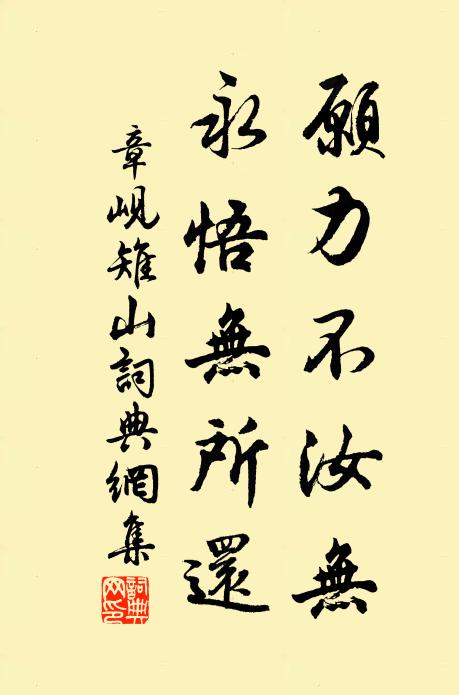 願力不汝無
永悟無所還
章峴雉山詞典網集
詞典
网印